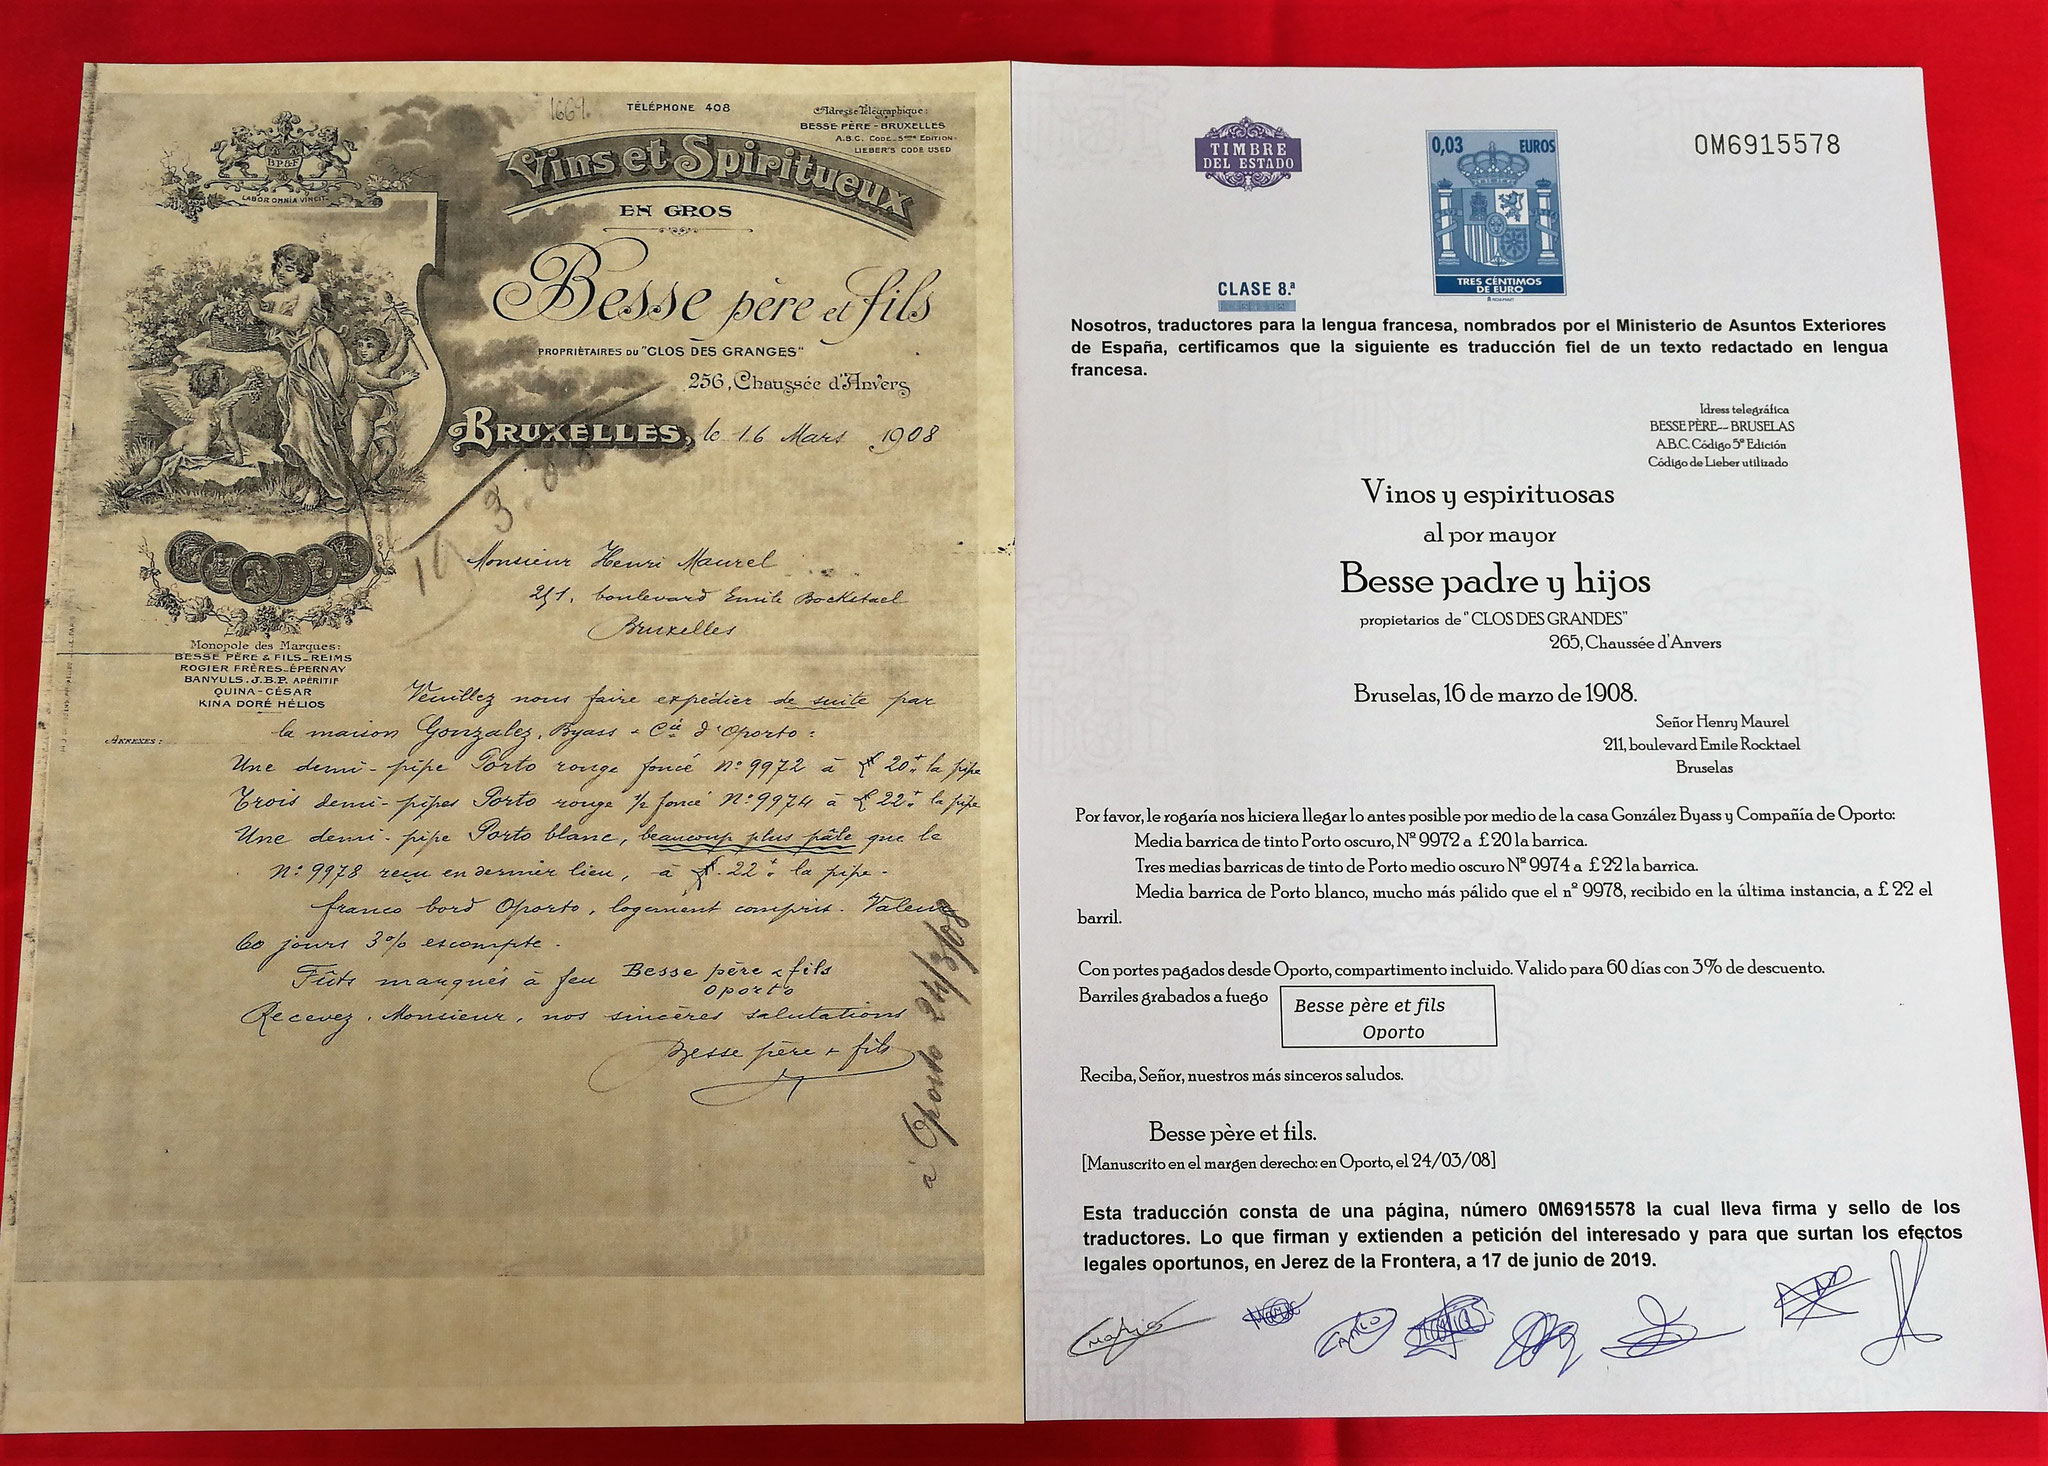 1661.
TÉLÉPHONE 408
Adresse Télégraphique:
BESSE PÈRE-BRUXELLES
A.B.C. CODE_5ème EDITION
LIEBER'S CODE USED
BP&F
LABOR OMNIA VINCIT
Vins et Spiritueux
EN GROS
Besse père et fils
PROPRIÉTAIRES DU "CLOS DES GRANGES"
256, Chaussée d'Anvers
BRUXELLES, le 16 Mars 1908
Monsieur Henri Maurel
251, boulevard Emile Bockstael
Bruxelles
Monopole des Marques:
BESSE PÈRE & FILS_REIMS
ROGIER FRÈRES-ÉPERNAY
BANYULS. J.B.P. APÉRITIF
QUINA-CÉSAR
KINA DORÉ HÉLIOS
ANNEXES:
Veuillez nous faire expédier de suite par
la maison Gonzalez, Byass & Cie d'Oporto:
Une demi-pipe Porto rouge foncé No 9972 à £ 20 la pipe
Trois demi-pipes Porto rouge 1/2 foncé No 9974 à £ 22 la pipe
Une demi-pipe Porto blanc, beaucoup plus pâle que le
No 9978 reçu en dernier lieu, à £ 22 la pipe-
franco bord Oporto, logement compris. Valeur
60 jours 3% escompte.
Fûts marqués à feu Besse père & fils
Oporto
Recevez, Monsieur, nos sincères salutations
Besse père & fils
à Oporto 24/3/08
TIMBRE
DEL ESTADO
0,03 EUROS
TRES CÉNTIMOS
DE EURO
0M6915578
CLASE 8.ª
Nosotros, traductores para la lengua francesa, nombrados por el Ministerio de Asuntos Exteriores
de España, certificamos que la siguiente es traducción fiel de un texto redactado en lengua
francesa.
Idress telegráfica
BESSE PÈRE-- BRUSELAS
A.B.C. Código 5ª Edición
Código de Lieber utilizado
Vinos y espirituosas
al por mayor
Besse padre y hijos
propietarios de "CLOS DES GRANDES"
265, Chaussée d'Anvers
Bruselas, 16 de marzo de 1908.
Señor Henry Maurel
211, boulevard Emile Rocktael
Bruselas
Por favor, le rogaría nos hiciera llegar lo antes posible por medio de la casa González Byass y Compañía de Oporto:
Media barrica de tinto Porto oscuro, Nº 9972 a £ 20 la barrica.
Tres medias barricas de tinto de Porto medio oscuro Nº 9974 a £ 22 la barrica.
Media barrica de Porto blanco, mucho más pálido que el nº 9978, recibido en la última instancia, a £ 22 el
barril.
Con portes pagados desde Oporto, compartimento incluido. Valido para 60 días con 3% de descuento.
Barriles grabados a fuego
Besse père et fils
Oporto
Reciba, Señor, nuestros más sinceros saludos.
Besse père et fils.
[Manuscrito en el margen derecho: en Oporto, el 24/03/08]
Esta traducción consta de una página, número 0M6915578 la cual lleva firma y sello de los
traductores. Lo que firman y extienden a petición del interesado y para que surtan los efectos
legales oportunos, en Jerez de la Frontera, a 17 de junio de 2019.